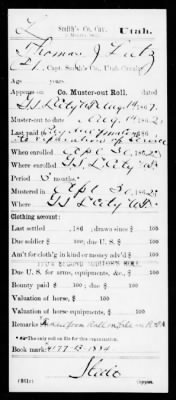 L Smith's Co., Cav. Utah.
Thomas J. Lutz
Pt., Capt. Smith's Co., Utah Cavalry
Age years.
Appears on
Co. Muster-out Roll, dated
G.S.L. City U.T. Aug 14, 1862.
Muster-out to date Aug. 14, 1862
Last paid to
to Expiration of service
When enrolled Apl 30, 1862.
Where enrolled G.S.L. City U.T.
Period 3 months.
Mustered in Apl 30, 1862.
Where G.S.L. City U.T.
Clothing account:
Last settled , 186 ; drawn since $ 100
Due soldier $ 100; due U. S. $ 100
Am't for cloth'g in kind or money adv'd $ 100
Due U. S. for arms, equipments, &c., $ 100
Bounty paid $ 100; due $ 100
Valuation of horse, $ 100
Valuation of horse equipments, $ 100
Remarks: Name from Roll on file in
Book mark: 1884
(361c) Copyist.